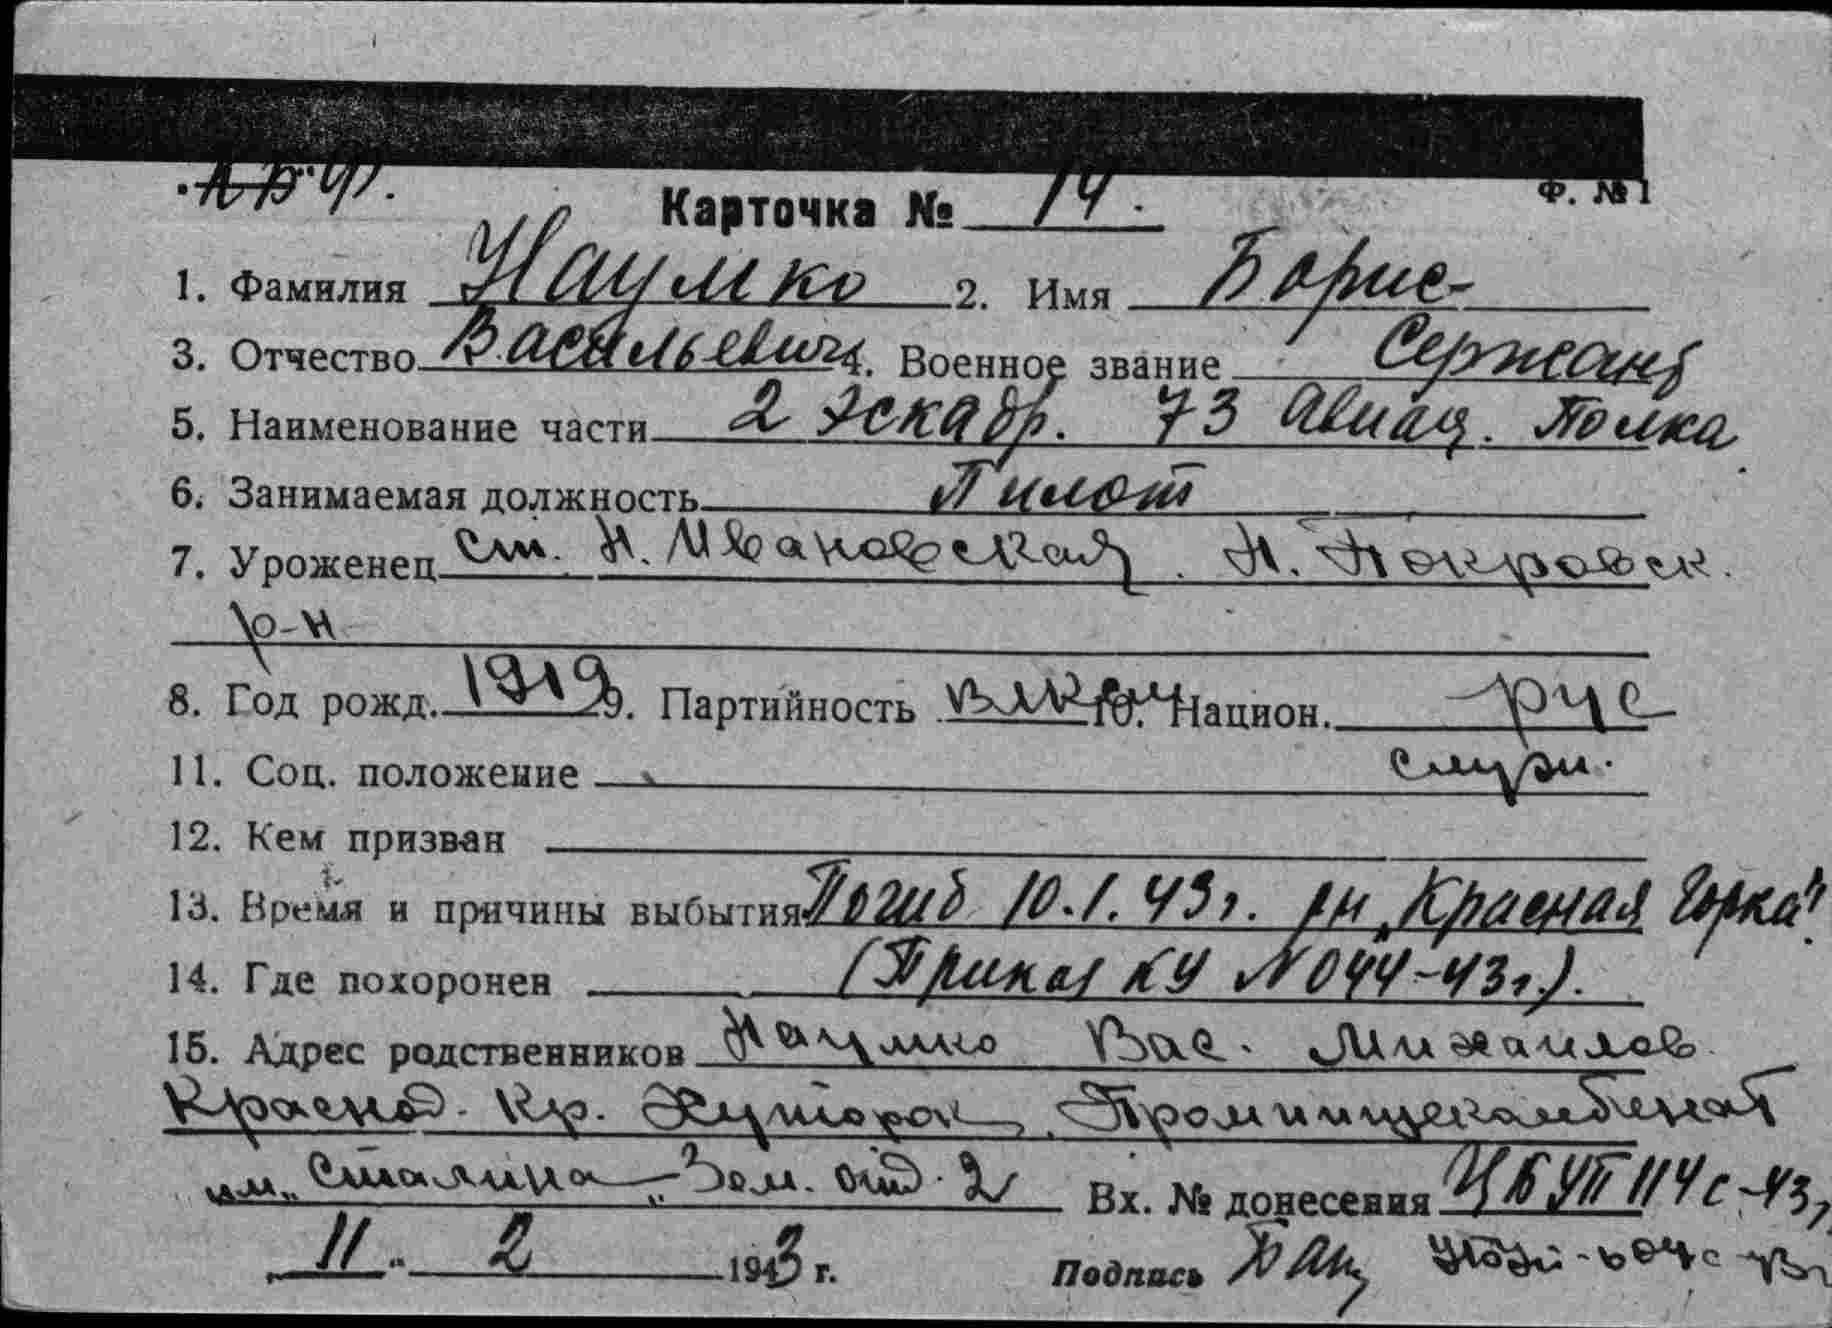 К.Б.Ф.
Карточка № 14. Ф. № 1
1. Фамилия Наумко 2. Имя Борис
3. Отчество Васильевич 4. Военное звание Сержант
5. Наименование части 2 Эскадр. 73 Авиац. Полка
6. Занимаемая должность Пилот
7. Уроженец ст. Н. Ивановская. Н. Покровск.
р-н
8. Год рожд. 1919 9. Партийность ВЛКСМ 10. Национ. рус
11. Соц. положение служ.
12. Кем призван
13. Время и причины выбытия Погиб 10.1.43 г. рн „Красная Горка"
14. Где похоронен (Приказ КУ № 044-43 г.).
15. Адрес родственников Наумко Вас. Михайлов
Краснод. Кр. Хуторок, Промпищекомбинат
им „Сталина" Зем. отд. 2 Вх. № донесения ЦБ УП 114с-43
11. 2 1943 г. Подпись